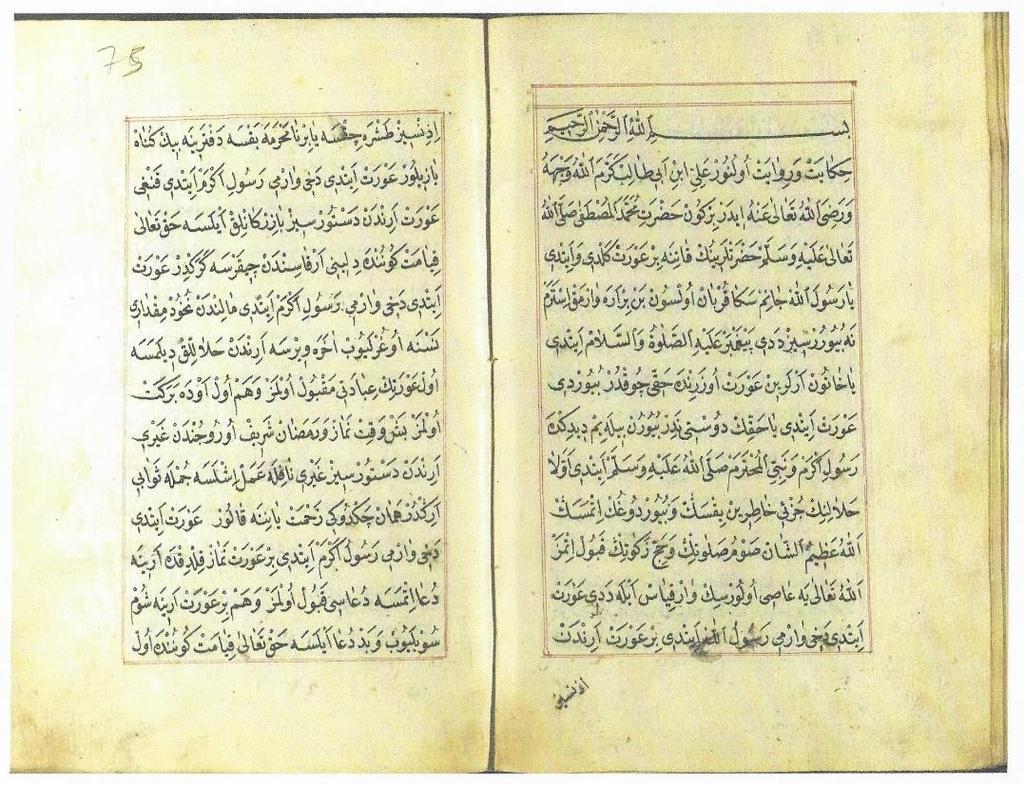 بسم الله الرحمن الرحيم
حِكَايَتْ وَرِوَايَتْ أُولُنُورْ عَلِي ابْنِ اَبِي طَالِبْ كَرَّمَ اللهُ وَجْهَهُ
وَرَضِيَ اللهُ تَعَالَى عَنْهُ اِيدَرْ بِرْكُونْ حَضْرَتِ مُحَمَّدِ الْمُصْطَفَى صَلَّى اللهُ
تَعَالَى عَلَيْهِ وَسَلَّمْ حَضْرَتْلَرِينِكْ قَاتِنَه بِرْ عَوْرَتْ كَلْدِي وَاَيِتْدِي
يَا رَسُولَ اللهْ جَانِمْ سَكَا قُرْبَانْ أُولْسُونْ بَنْ بِرْ اَرَه وَارْمَقْ اِسْتَرَمْ
نَه بُيُورُرْسِيزْ دَدِي پَيْغَمْبَرْ عَلَيْهِ الصَّلَوةُ وَالسَّلَامْ اَيِتْدِي
يَا خَاتُونْ اَرْلَرِينْ عَوْرَتْ اُوزَرِنْدَه حَقِّي چُوقْدُرْ بُيُورْدِي
عَوْرَتْ اَيِتْدِي يَا حَقِّكْ دُوسْتِي نَدَرْ بُيُورُنْ بِيلَه يِمْ دِيدِكْدَه
رَسُولِ اَكْرَمْ وَنَبِيِّ الْمُحْتَرَمْ صَلَّى اللهُ عَلَيْهِ وَسَلَّمْ اَيِتْدِي اَوَّلَا
حَلَالِنِكْ جُزْئِي خَاطِرِينْ يِقْسَكْ وَبُيُورْدُوغُكْ اِتْمَسَكْ
اللهُ عَظِيمُ الشَّانْ صَوْمُ صَلَوتِكْ وَحَجْ زَكَوتِكْ قَبُولْ اِتْمَزْ
اللهُ تَعَالَى يَه عَاصِي أُولُورْسِكْ وَارْ قِيَاسْ اَيْلَه دَدِي عَوْرَتْ
اَيِتْدِي دَخِي وَارْمِي رَسُولُ اللهْ اَيِتْدِي بِرْ عَوْرَتْ اَرِنْدَنْ
اذنسيز
75
اِذِنْسِيزْ طَشْرَه چِقْسَه يَا بِرْ نَامَحْرَمَه بَقْسَه دَفْتَرِينَه بِيكْ كُنَاه
يَازِيلُورْ عَوْرَتْ اَيِتْدِي دَخِي وَارْمِي رَسُولِ اَكْرَمْ اَيِتْدِي قَنْغِي
عَوْرَتْ اَرِنْدَنْ دَسْتُورْسِيزْ بَازِرْكَانْلِقْ اَيْلَسَه حَقْ تَعَالَى
قِيَامَتْ كُونُنْدَه دِلِينِي اَرْقَاسِنْدَنْ چِيقَرْسَه كَرَكْدِرْ عَوْرَتْ
اَيِتْدِي دَخِي وَارْمِي رَسُولِ اَكْرَمْ اَيِتْدِي مَالِنْدَنْ نُخُودْ مِقْدَارِي
نَسْنَه اُوغُرْلَيُوبْ اٰخَرَه وِيرْسَه اَرِنْدَنْ حَلَالْلِقْ دِيلَمَسَه
اُولْ عَوْرَتِكْ عِبَادَتِي مَقْبُولْ اُولْمَزْ وَهَمْ اُولْ اَوْدَه بَرَكَتْ
اُولْمَزْ بَشْ وَقِتْ نَمَازْ وَرَمَضَانْ شَرِيفْ اُورُوجُنْدَنْ غَيْرِي
اَرِنْدَنْ دَسْتُورْسِيزْ غَيْرِي نَافِلَه عَمَلْ اِشْلَسَه جُمْلَه ثَوَابِي
اَرِكْدُرْ هَمَانْ چَكْدُوكِي زَحْمَتْ يَانِنَه قَالُورْ عَوْرَتْ اَيِتْدِي
دَخِي وَارْمِي رَسُولِ اَكْرَمْ اَيِتْدِي بِرْ عَوْرَتْ نَمَازْ قِلْدِقْدَه اَرِينَه
دُعَا اِتْمَسَه دُعَاسِي قَبُولْ اُولْمَزْ وَهَمْ بِرْ عَوْرَتْ اَرِينَه شُومْ
سُويْلَيُوبْ وَبَدْ دُعَا اَيْلَسَه حَقْ تَعَالَى قِيَامَتْ كُونُنْدَه اُولْ